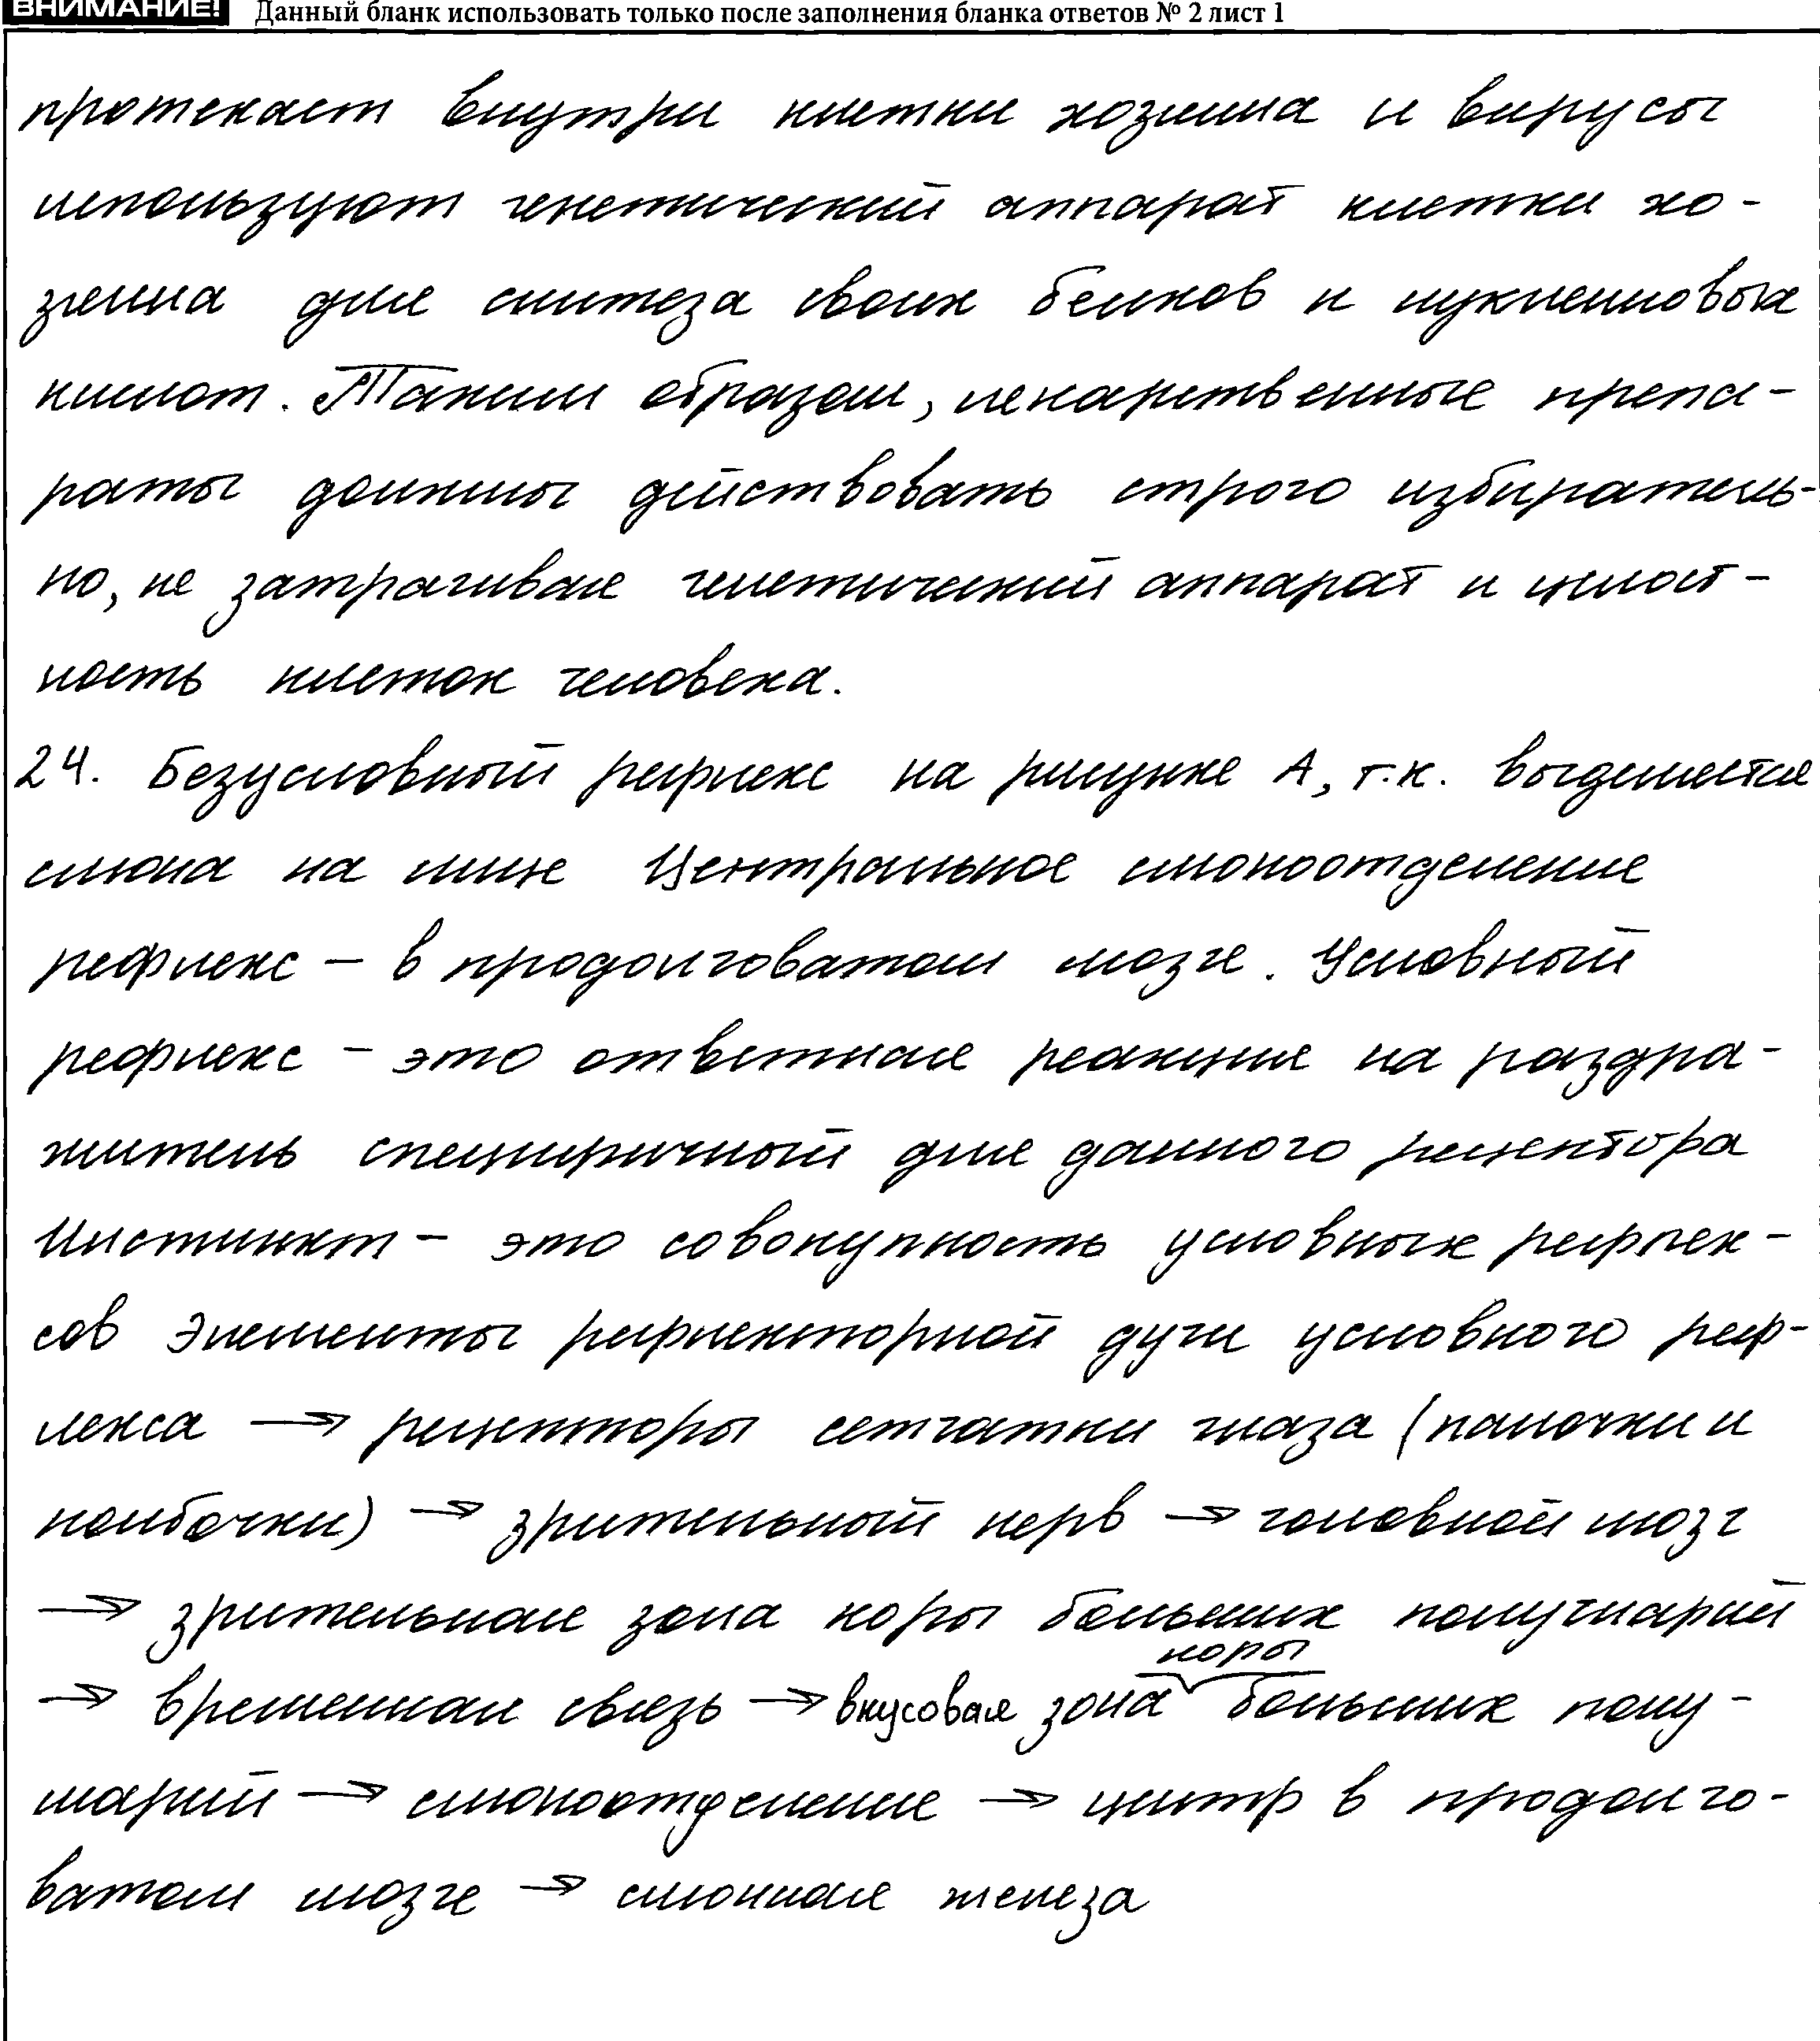 ВНИМАНИЕ! Данный бланк использовать только после заполнения бланка ответов № 2 лист 1
протекает внутри клетки хозяина и вирусы
используют генетический аппарат клетки хо-
зяина для синтеза своих белков и нуклеиновых
кислот. Таким образом, лекарственные препа-
раты должны действовать строго избиратель-
но, не затрагивая генетический аппарат и целост-
ность клеток человека.
24. Безусловный рефлекс на рисунке А, т.к. выделяется
слюна на пищу Центральное слюноотделение
рефлекс – в продолговатом мозге. Условный
рефлекс – это ответная реакция на раздра-
житель специфичный для данного рецептора
Инстинкт – это совокупность условных рефлек-
сов Элементы рефлекторной дуги условного реф-
лекса → рецепторы сетчатки глаза (палочки и
колбочки) → зрительный нерв → головной мозг
→ зрительная зона коры больших полушарий
коры
→ временная связь → вкусовая зона больших полу-
шарий → слюноотделение → центр в продолго-
ватом мозге → слюнная железа